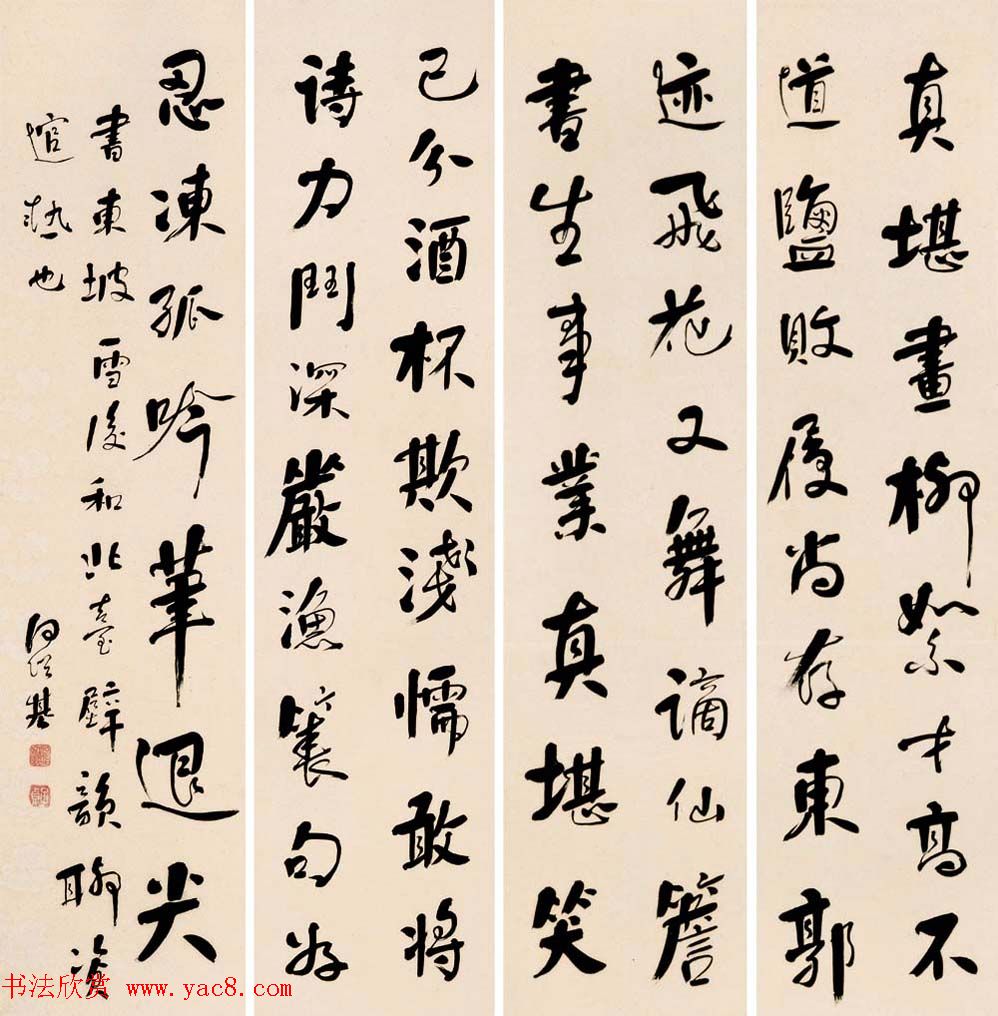 真堪畫柳絮才高不
道鹽敗履尚存東郭
迹飛花又舞謫仙簷
書生事業真堪笑
已分酒杯欺淺懦敢將
詩力鬥深嚴漁簑句好
忍凍孤吟筆退尖
書東坡雪後和北臺壁韻聊資
逭熱也
何紹基
书法欣赏 www.yac8.com